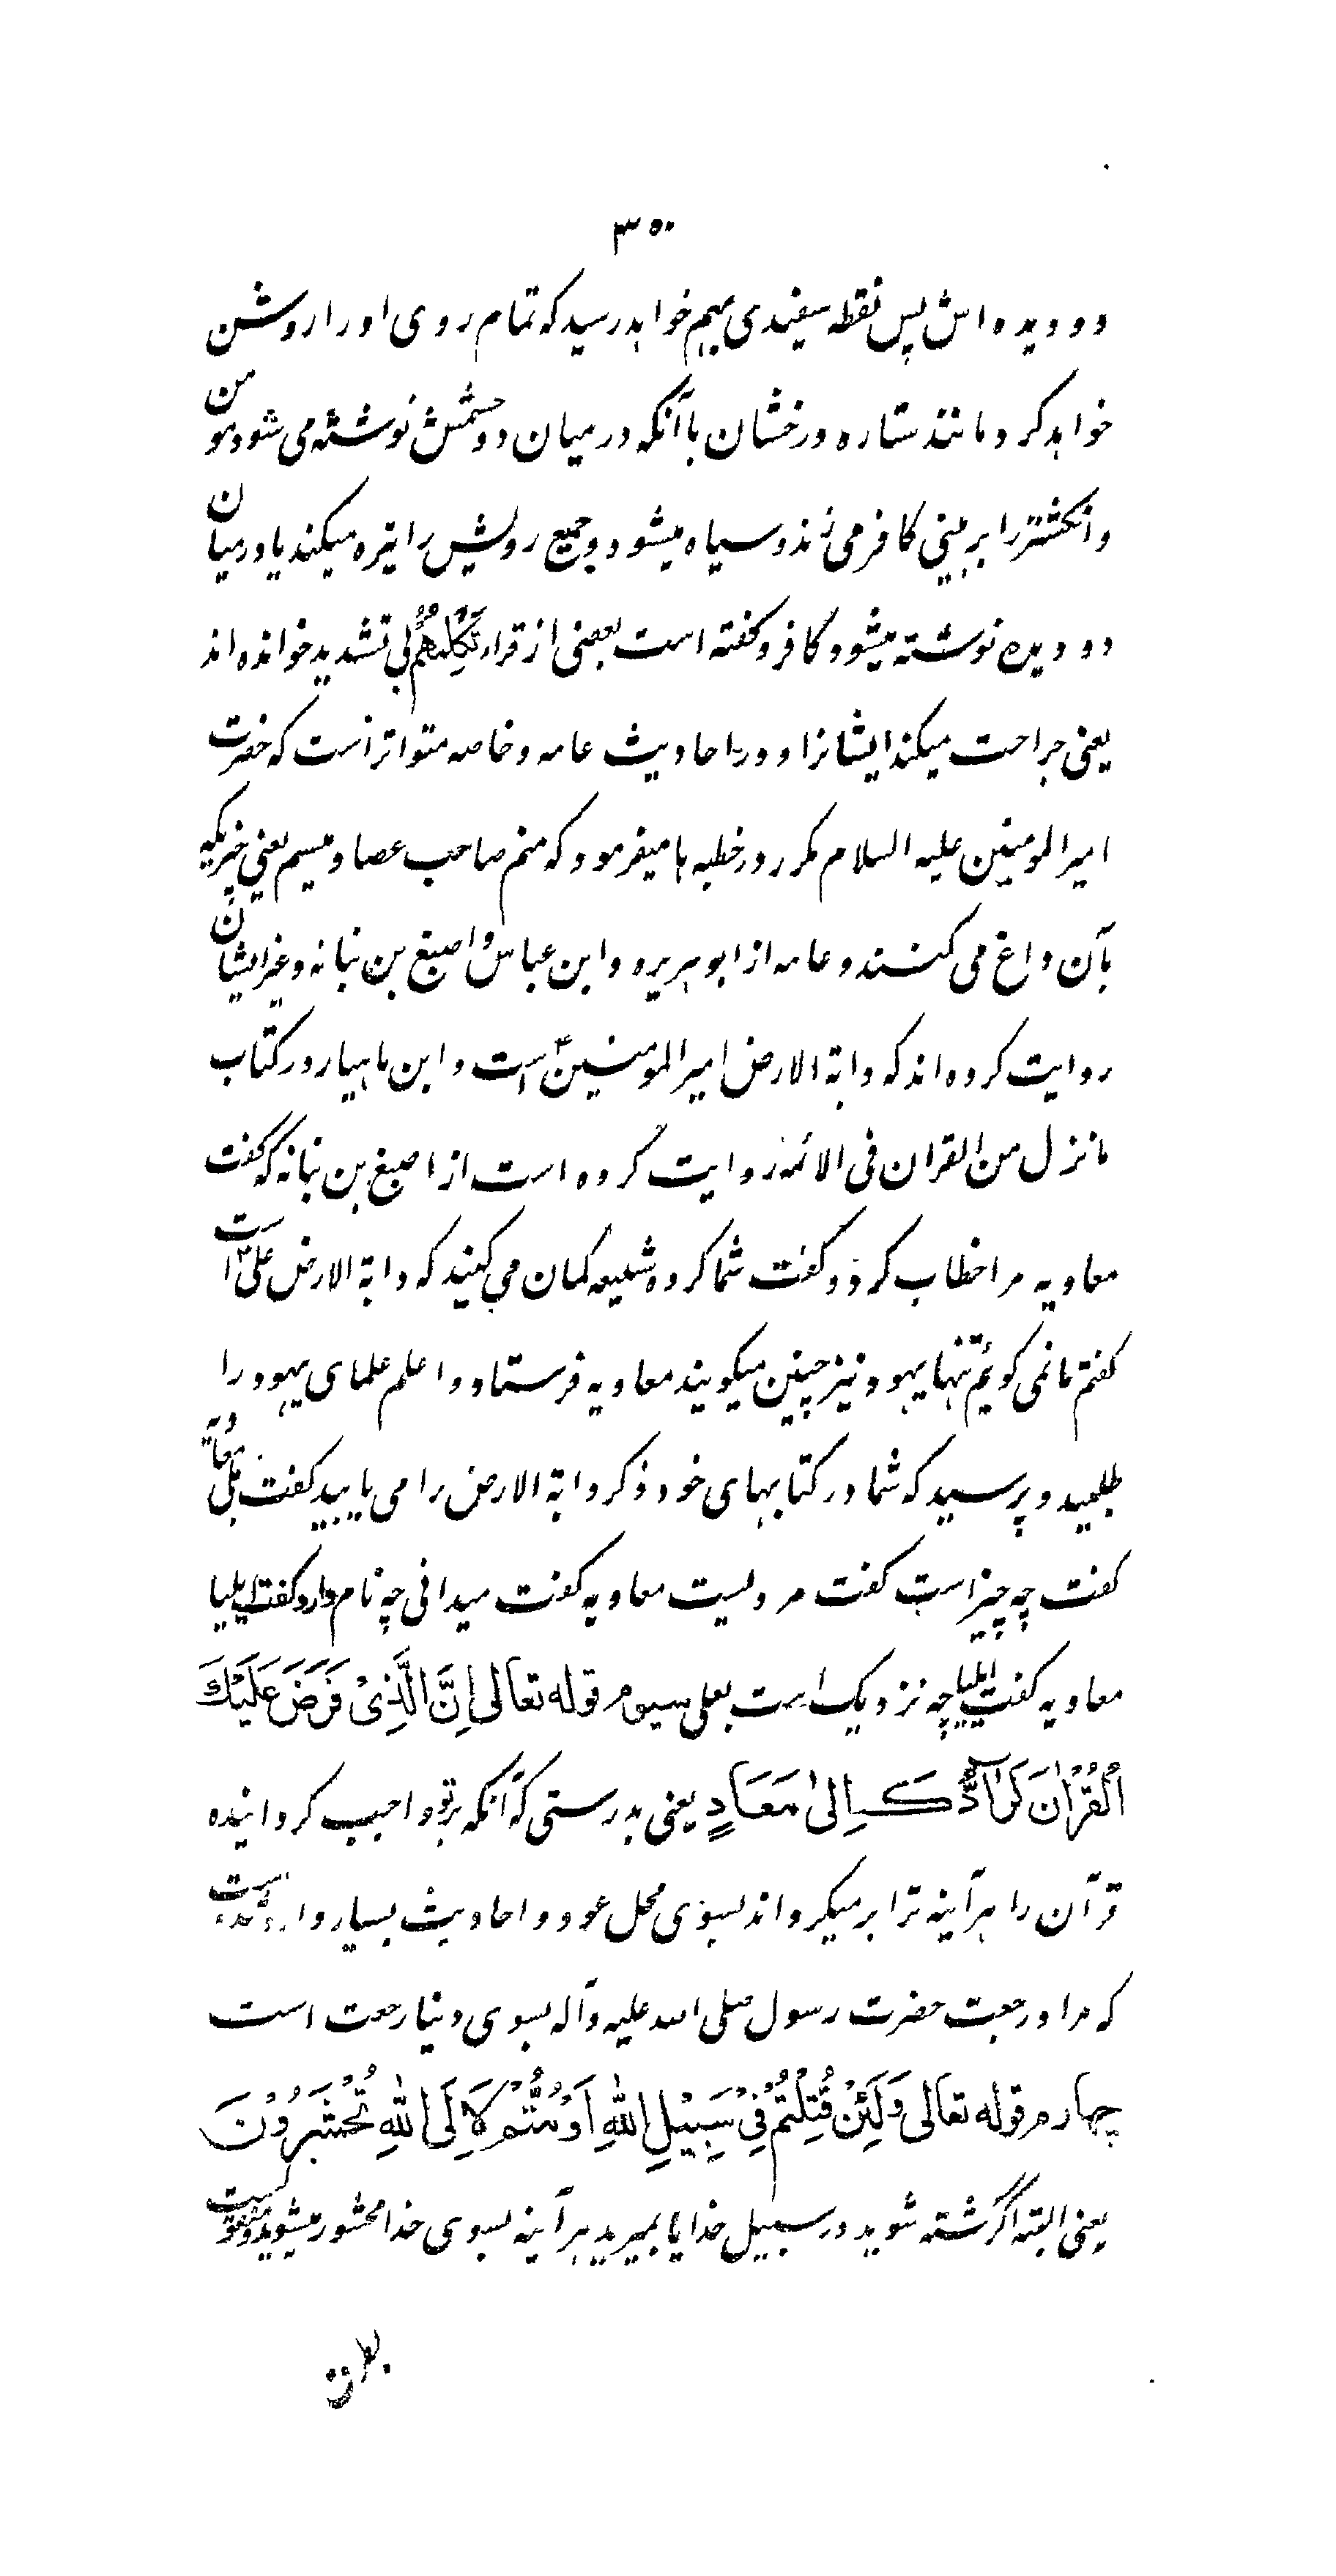 ۳۵۰
دو دیده اش پس نقطه سفیدی بهم خواهد رسید که تمام روی او را روشن
خواهد کرد مانند ستاره درخشان با آنکه در میان دو چشمش نوشته می شود مومن
و انگشتر را بر بینی کافر می زند و سیاه میشود و جمیع رویش را تیره میکند یا در میان
دو دیده نوشته میشود کافر و گفته است بعضی از قراء تَكْلِمُهُمْ بی تشدید خوانده اند
یعنی جراحت میکند ایشانرا و در احادیث عامه و خاصه متواتر است که حضرت
امیر المومنین علیه السلام مکرر در خطبه ها میفرمود که منم صاحب عصا و میسم یعنی چیزیکه
بآن داغ می کنند و عامه از ابو هریره و ابن عباس و اصبغ بن نباته و غیر ایشان
روایت کرده اند که دابة الارض امیر المومنین ع است و ابن ماهیار در کتاب
ما نزل من القران فی الائمه روایت کرده است از اصبغ بن نباته که گفت
معاویه مرا خطاب کرد و گفت شما گروه شیعه گمان می کنید که دابة الارض علی ع است
گفتم ما نمی گوئیم تنها یهود نیز چنین میگویند معاویه فرستاد و اعلم علمای یهود را
طلبید و پرسید که شما در کتابهای خود ذکر دابة الارض را می یابید گفت بلی معاویه
گفت چه چیز است گفت مردیست معاویه گفت میدانی چه نام دارد گفت ایلیا
معاویه گفت ایلیا چه نزدیک است بعلی سیوم قوله تعالی اِنَّ الَّذِیْ فَرَضَ عَلَیْكَ
الْقُرْاٰنَ لَرَآدُّكَ اِلٰی مَعَادٍ یعنی بدرستی که آنکه بر تو واجب گردانیده
قرآن را هر آینه ترا بر میگرداند بسوی محل عود و احادیث بسیار وارد شده است
که مراد رجعت حضرت رسول صلی الله علیه وآله بسوی دنیا رجعت است
چهارم قوله تعالی وَلَئِنْ قُتِلْتُمْ فِیْ سَبِیْلِ اللهِ اَوْ مُتُّمْ لَاِلَی اللهِ تُحْشَرُوْنَ
یعنی البته اگر کشته شوید در سبیل خدا یا بمیرید هر آینه بسوی خدا محشور میشوید و منقولست